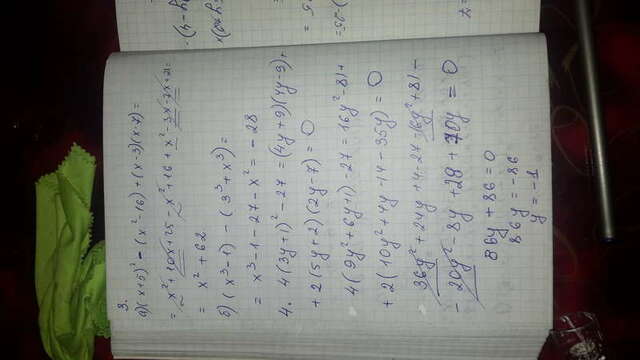 3.
а) (x+5)² - (x²-16) + (x-3)(x-7) =
= x² + 10x + 25 - x² + 16 + x² - 3x - 7x + 21 =
= x² + 62
б) (x³-1) - (3³ + x³) =
= x³ - 1 - 27 - x² = - 28
4. 4(3y+1)² - 27 = (4y+9)(4y-9) +
+ 2(5y+2)(2y-7) = 0
4(9y² + 6y + 1) - 27 = 16y² - 81 +
+ 2(10y² + 4y - 14 - 35y) = 0
36y² + 24y + 4 - 27 - 16y² + 81 -
- 20y² - 8y + 28 + 70y = 0
86y + 86 = 0
86y = -86
y = -1